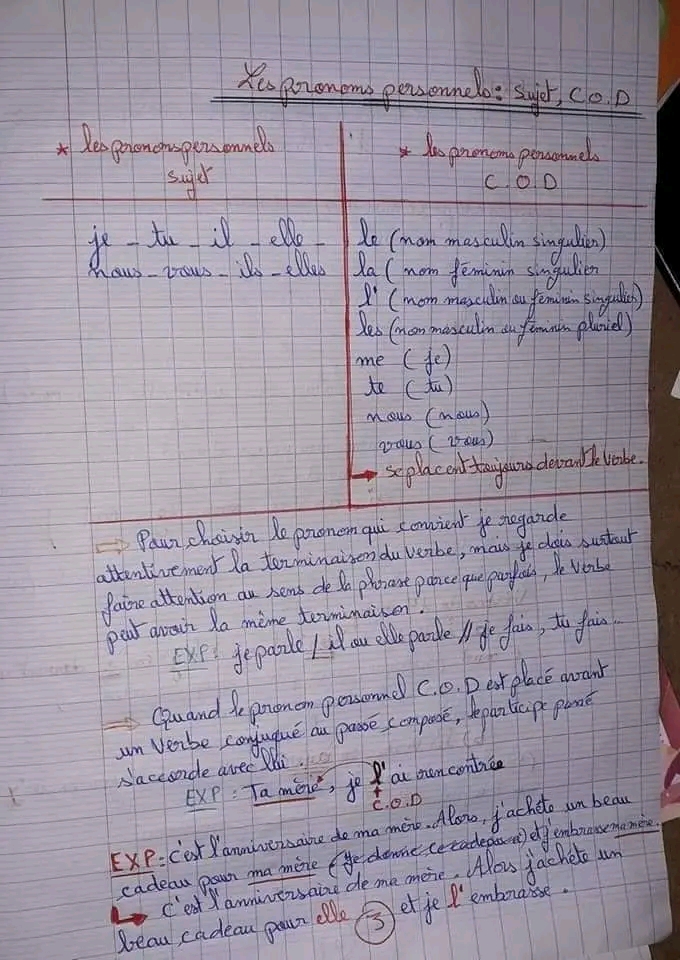 Les pronoms personnels : sujet, C.O.D
* les pronoms personnels
sujet
je - tu - il - elle -
nous - vous - ils - elles
* les pronoms personnels
C.O.D
le (nom masculin singulier)
la ( nom féminin singulier
l' ( nom masculin ou féminin singulier)
les (nom masculin ou féminin pluriel)
me ( je)
te ( tu)
nous ( nous)
vous ( vous)
→ se placent toujours devant le verbe.
⇒ Pour choisir le pronom qui convient je regarde
attentivement la terminaison du verbe, mais je dois surtout
faire attention au sens de la phrase parce que parfois, le verbe
peut avoir la même terminaison.
EXP : je parle / il ou elle parle // je fais, tu fais...
⇒ Quand le pronom personnel C.O.D est placé avant
un verbe conjugué au passé composé, le participe passé
s'accorde avec lui.
EXP : Ta mère, je l'ai rencontrée
C.O.D
EXP : C'est l'anniversaire de ma mère. Alors, j'achète un beau
cadeau pour ma mère (je donne ce cadeau à) et j'embrasse ma mère.
→ C'est l'anniversaire de ma mère. Alors j'achète un
beau cadeau pour elle et je l'embrasse.
3